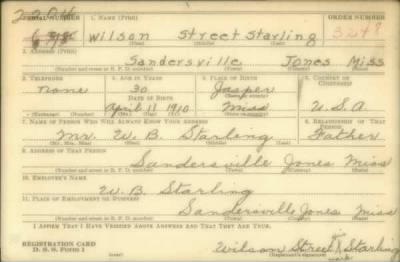 2204
SERIAL NUMBER 1. NAME (Print) ORDER NUMBER
Wilson Street Starling
(First) (Middle) (Last)
2. ADDRESS (Print)
Sandersville Jones Miss
(Number and street or R. F. D. number) (Town) (County) (State)
3. TELEPHONE 4. AGE IN YEARS 5. PLACE OF BIRTH 6. COUNTRY OF CITIZENSHIP
none 30 Jasper
DATE OF BIRTH (Town or county)
April 11 1910 Miss U.S.A.
(Exchange) (Number) (Mo.) (Day) (Yr.) (State or country)
7. NAME OF PERSON WHO WILL ALWAYS KNOW YOUR ADDRESS 8. RELATIONSHIP OF THAT PERSON
Mr. W. B. Starling Father
(Mr., Mrs., Miss) (First) (Middle) (Last)
9. ADDRESS OF THAT PERSON
Sandersville Jones Miss
(Number and street or R. F. D. number) (Town) (County) (State)
10. EMPLOYER'S NAME
W. B. Starling
11. PLACE OF EMPLOYMENT OR BUSINESS
Sandersville Jones Miss
(Number and street or R. F. D. number) (Town) (County) (State)
I AFFIRM THAT I HAVE VERIFIED ABOVE ANSWERS AND THAT THEY ARE TRUE.
REGISTRATION CARD
D. S. S. Form 1 (over)
Wilson Street Starling
(Registrant's signature) mark